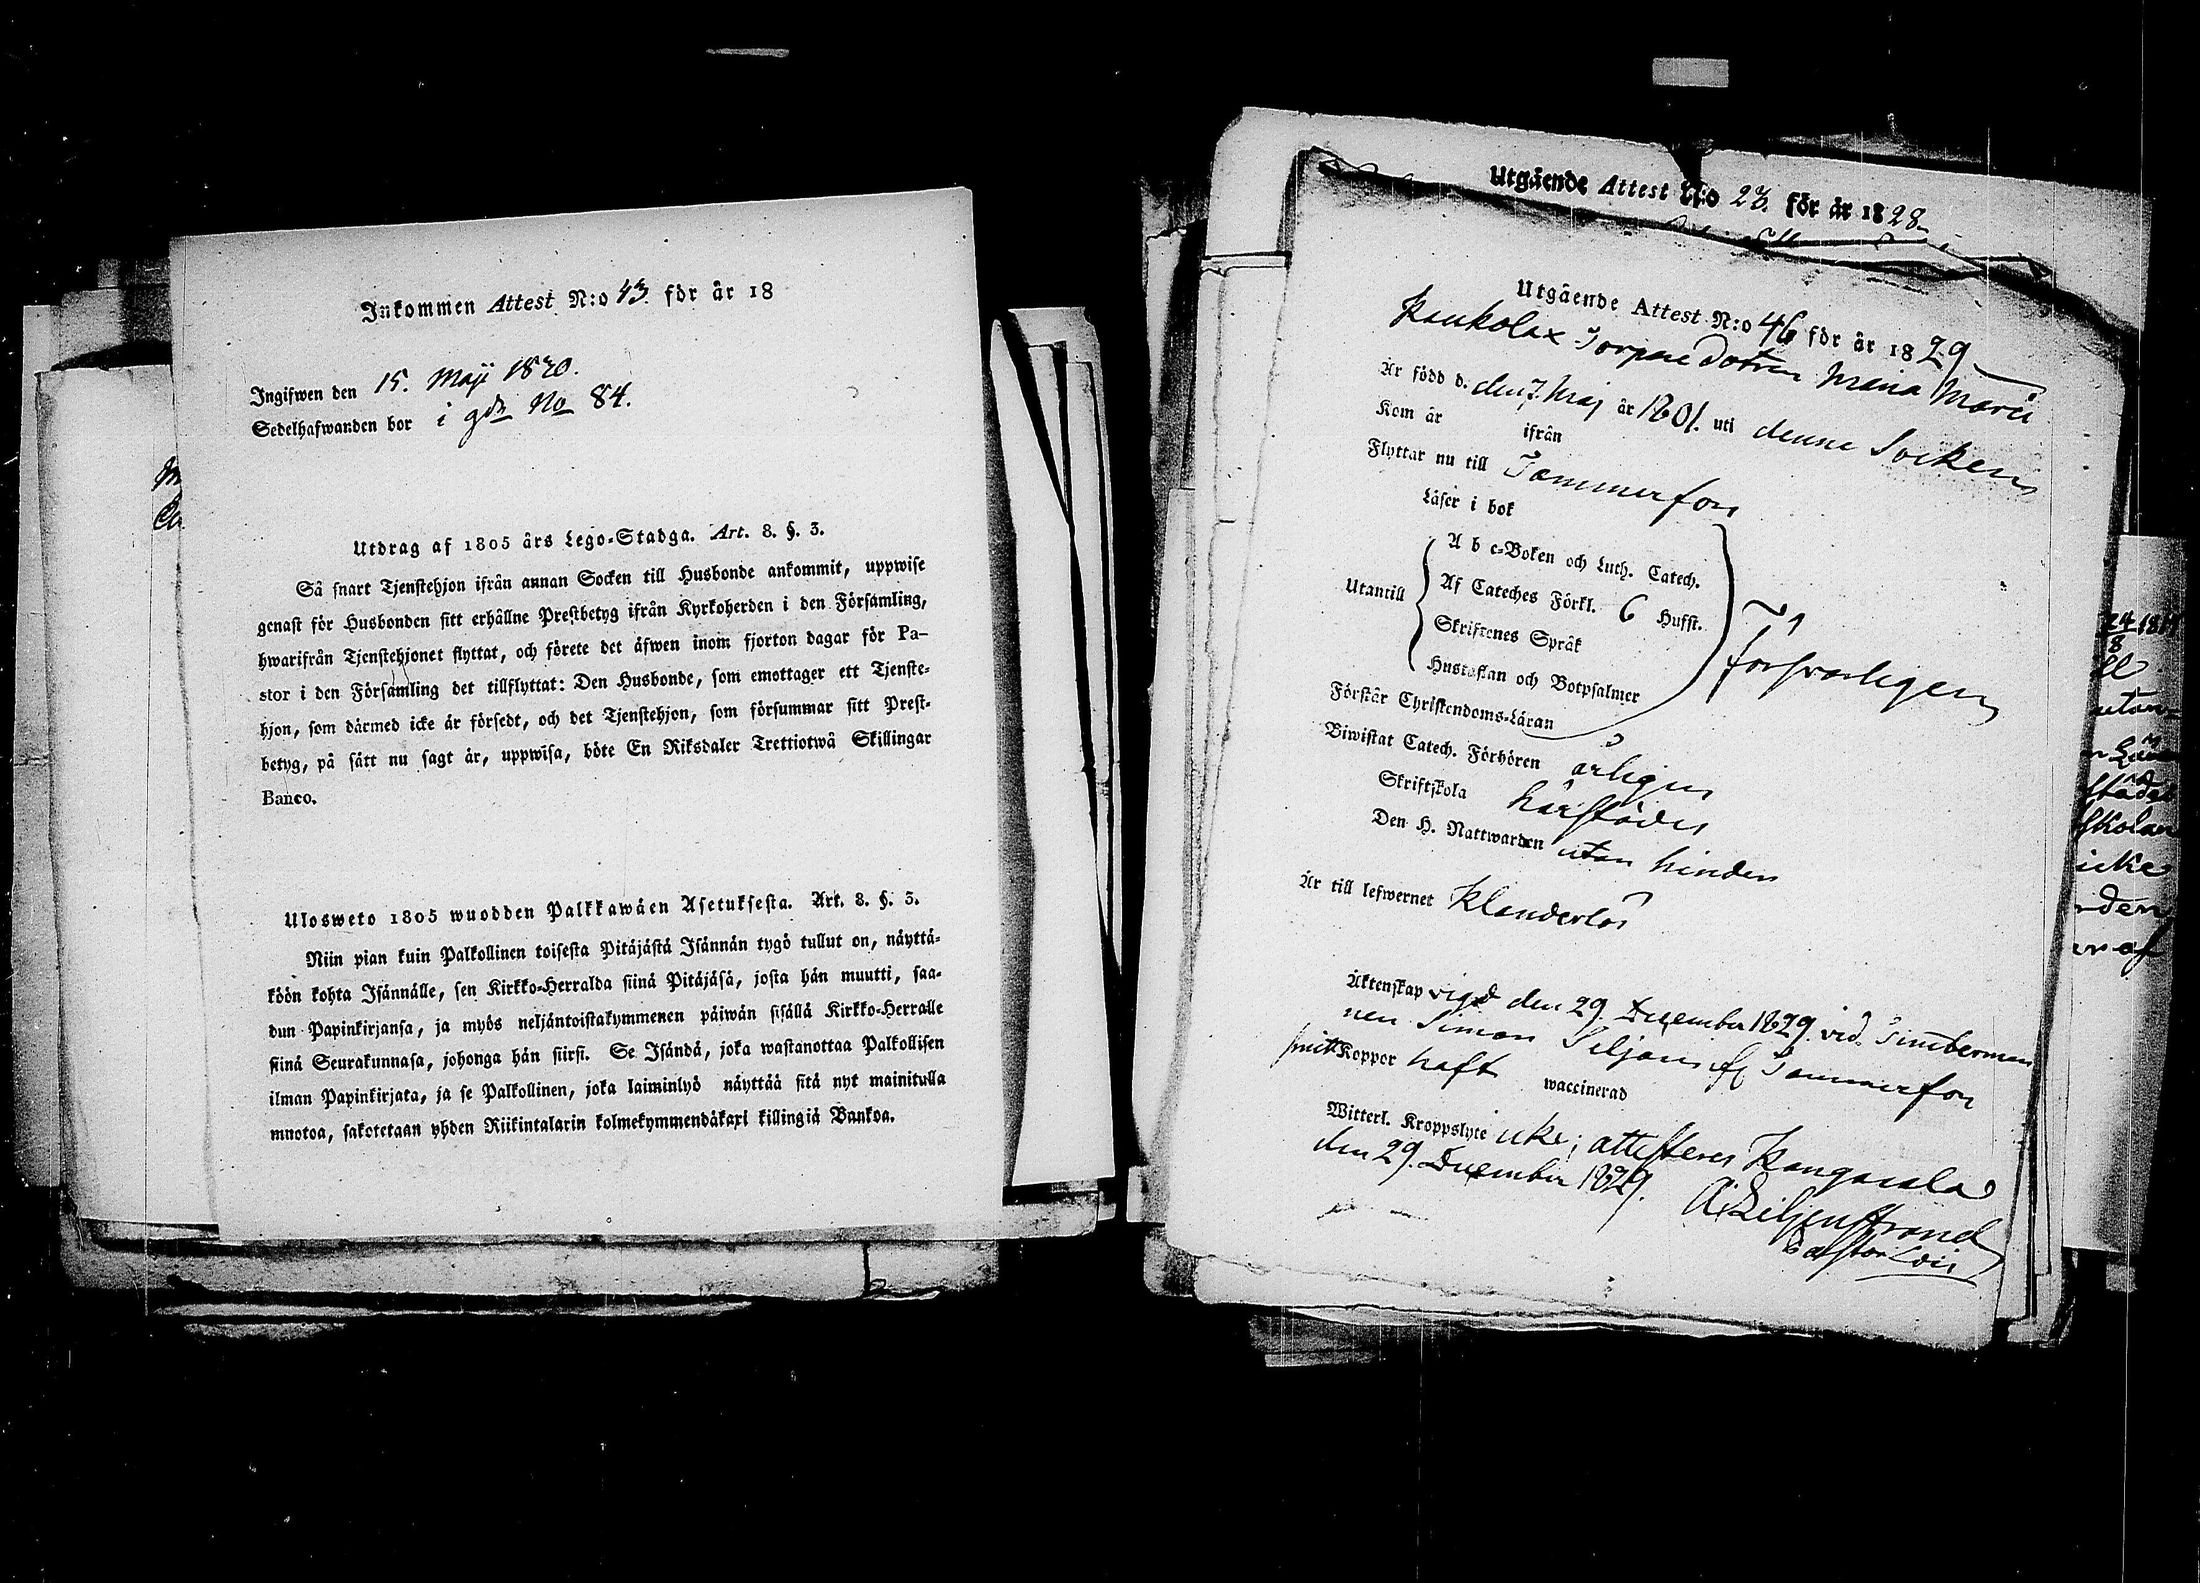 Inkommen Attest N:o 43. för år 18
Ingifwen den 15. Maji 1830.
Sedelhafwanden bor i gdn No 84.
Utdrag af 1805 års Lego-Stadga. Art. 8. §. 3.
Så snart Tjenstehjon ifrån annan Socken till Husbonde ankommit, uppwise
genast för Husbonden sitt erhållne Prestbetyg ifrån Kyrkoherden i den Församling,
hwarifrån Tjenstehjonet flyttat, och förete det äfwen inom fjorton dagar för Pa-
stor i den Församling det tillflyttat: Den Husbonde, som emottager ett Tjenste-
hjon, som därmed icke är försedt, och det Tjenstehjon, som försummar sitt Prest-
betyg, på sätt nu sagt är, uppwisa, böte En Riksdaler Trettiotwå Skillingar
Banco.
Ulosweto 1805 wuodden Palkkawäen Asetuksesta. Art. 8. §. 3.
Niin pian kuin Palkollinen toisesta Pitäjästä Isännän tygö tullut on, näyttä-
köön kohta Isännälle, sen Kirkko-Herralda siinä Pitäjäsä, josta hän muutti, saa-
dun Papinkirjansa, ja myös neljäntoistakymmenen päiwän sisällä Kirkko-Herralle
siinä Seurakunnasa, johonga hän siirsi. Se Isändä, joka wastanottaa Palkollisen
ilman Papinkirjata, ja se Palkollinen, joka laiminlyö näyttää sitä nyt mainitulla
muotoa, sakotetaan yhden Riikintalarin kolmekymmendäkaxi killingiä Bankoa.
Utgående Attest N:o 23. för år 1828
Utgående Attest N:o 46 för år 1829
Kaukolax Torpare Dotren Maria
Är född d. den 7. Maj år 1801. uti denne Socken
Kom år ifrån
Flyttar nu till Tammerfors
Läser i bok
A b c-Boken och Luth. Catech.
Utantill Af Cateches Förkl. 6 Hufst.
Skriftenes Språk
Hustaflan och Botpsalmer
försvarligen
Förstår Christendoms-Läran
Biwistat Catech. Förhören årligen
Skriftskola härstädes
Den H. Nattwarden utan hinder
Är till lefwernet Klanderlös
Äktenskap vigd den 29. December 1829. vid Timberman
nen Simon Seljans af Tammerfors
Koppor haft waccinerad
Witterl. Kroppslyte icke; attesteras Kangasala
den 29. December 1829.
A. Liljenstrand
Pastor
24 1817
8
ll
utan-
städes
skolan
icke
rden
er af